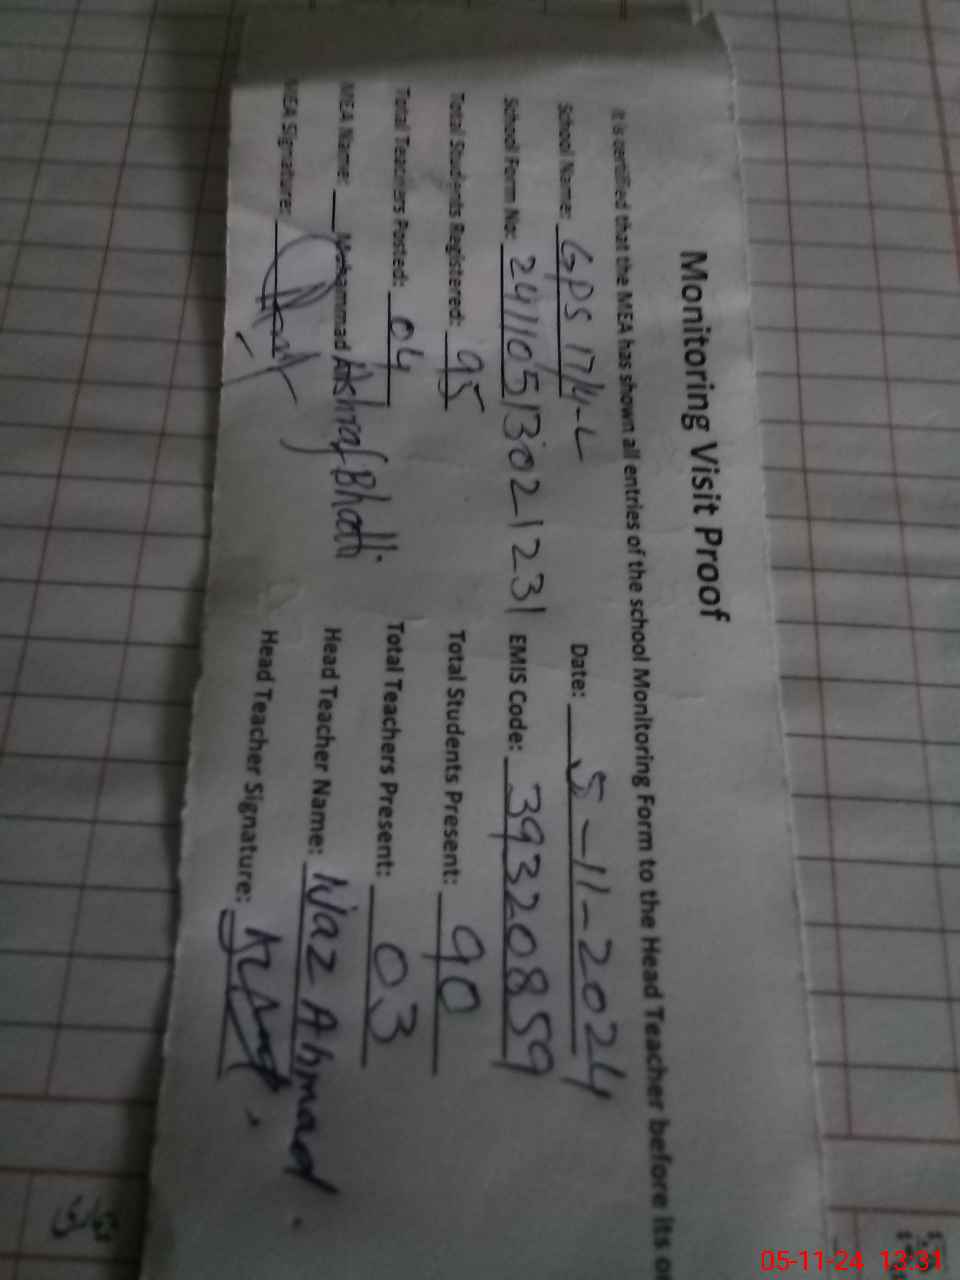 Monitoring Visit Proof
It is certified that the MEA has shown all entries of the school Monitoring Form to the Head Teacher before its
School Name: GPS 17/4-L Date: 5-11-2024
School Form No: 241110513021231 EMIS Code: 39320859
Total Students Registered: 95 Total Students Present: 90
Total Teachers Posted: 04 Total Teachers Present: 03
MEA Name: Mohammad Ashraf Bhatti Head Teacher Name: Niaz Ahmad
MEA Signature: Head Teacher Signature:
05-11-24 13:31